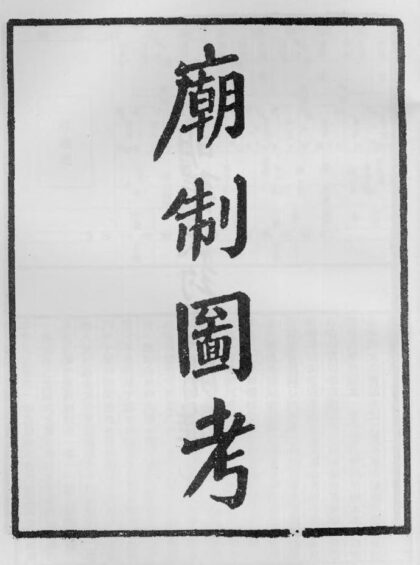 廟制圖考